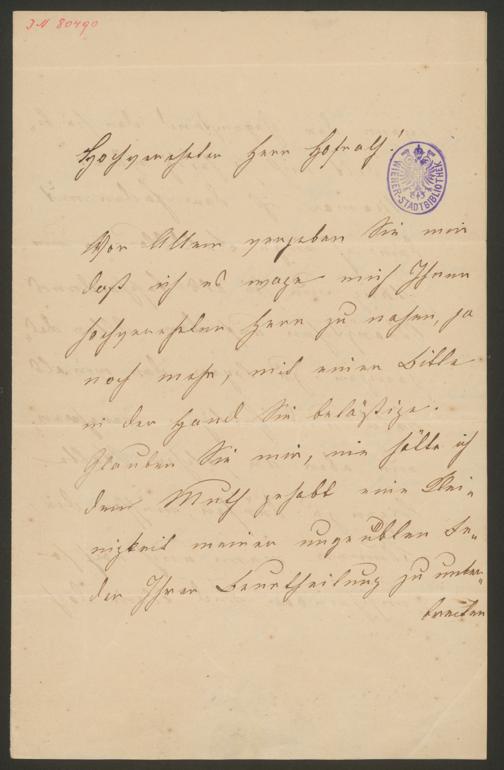 J.N 80490
Hochverehrter Herr Hofrath!
WIENER-STADTBIBLIOTHEK
Vor Allem vergeben Sie mir
daß ich es wage mich Ihnen
hochverehrter Herr zu nahen, ja
noch mehr, mit einer Bitte
in der Hand Sie belästige.
Glauben Sie mir, nie hätte ich
den Muth gehabt eine Klei-
nigkeit meiner ungeübten Fe-
der Ihrer Beurtheilung zu unter-
breiten